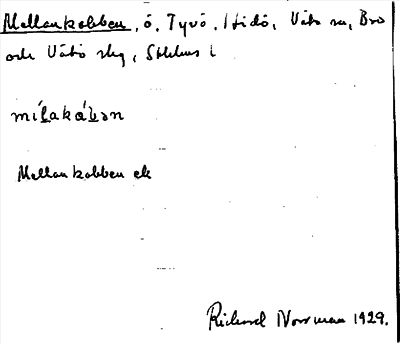 Mellankobben, ö, Tyvö, Hidö, Väto sn, Bro
och Väto slg, Sthlms l
mi̱lakáḇən
Mellankobben ek
Richard Norrman 1929.